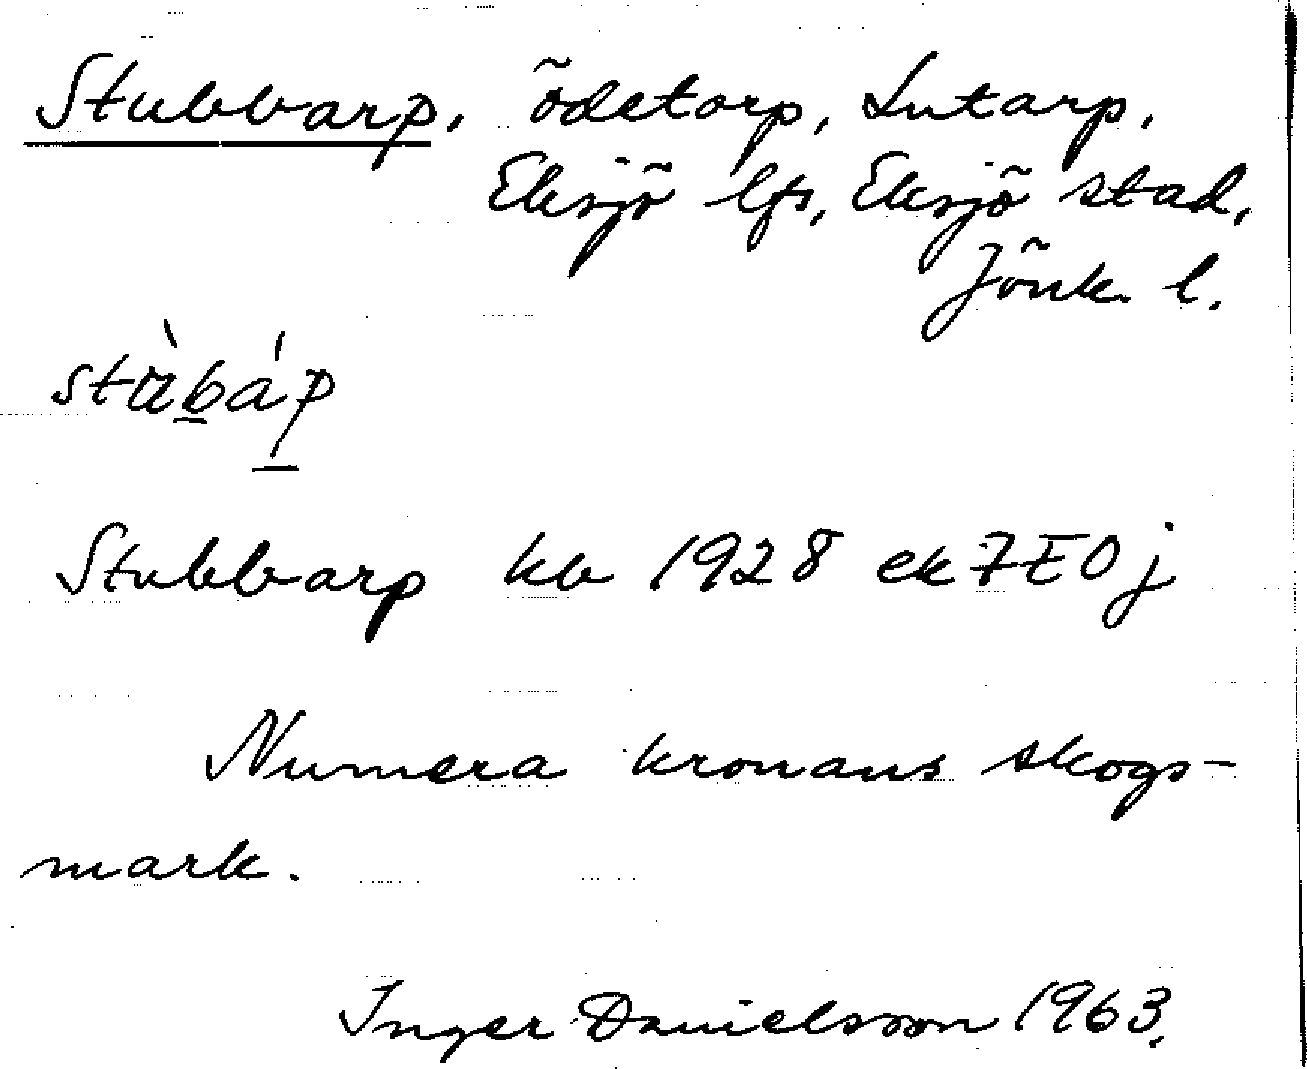 Stubbarp, ödetorp, Lutarp,
Eksjö lfs, Eksjö stad,
Jönk. l.
stùbáp
Stubbarp kb 1928 ek 7E0j
Numera kronans skogs-
mark.
Inger Danielsson 1963.